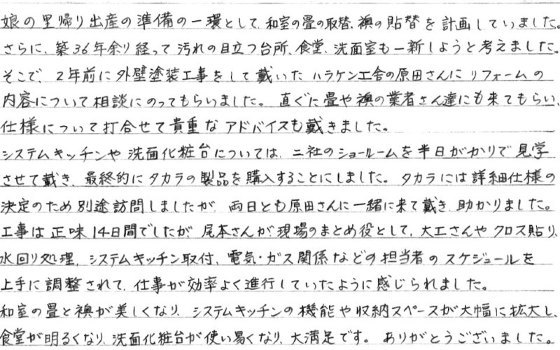 娘の里帰り出産の準備の一環として、和室の畳の取替、襖の貼替を計画していました。
さらに、築36年余り経って汚れの目立つ台所、食堂、洗面室も一新しようと考えました。
そこで、2年前に外壁塗装工事をして戴いたハラケン工舎の原田さんにリフォームの
内容について相談にのってもらいました。直ぐに畳や襖の業者さん達にも来てもらい、
仕様について打合せて貴重なアドバイスも戴きました。
システムキッチンや洗面化粧台については、三社のショールームを半日がかりで見学
させて戴き、最終的にタカラの製品を購入することにしました。タカラには詳細仕様の
決定のため別途訪問しましたが、両日とも原田さんに一緒に来て戴き、助かりました。
工事は正味14日間でしたが、尾本さんが現場のまとめ役として、大工さんやクロス貼り、
水回り処理、システムキッチン取付、電気・ガス関係などの担当者のスケジュールを
上手に調整されて、仕事が効率よく進行していたように感じられました。
和室の畳と襖が美しくなり、システムキッチンの機能や収納スペースが大幅に拡大し、
食堂が明るくなり、洗面化粧台が使い易くなり、大満足です。ありがとうございました。